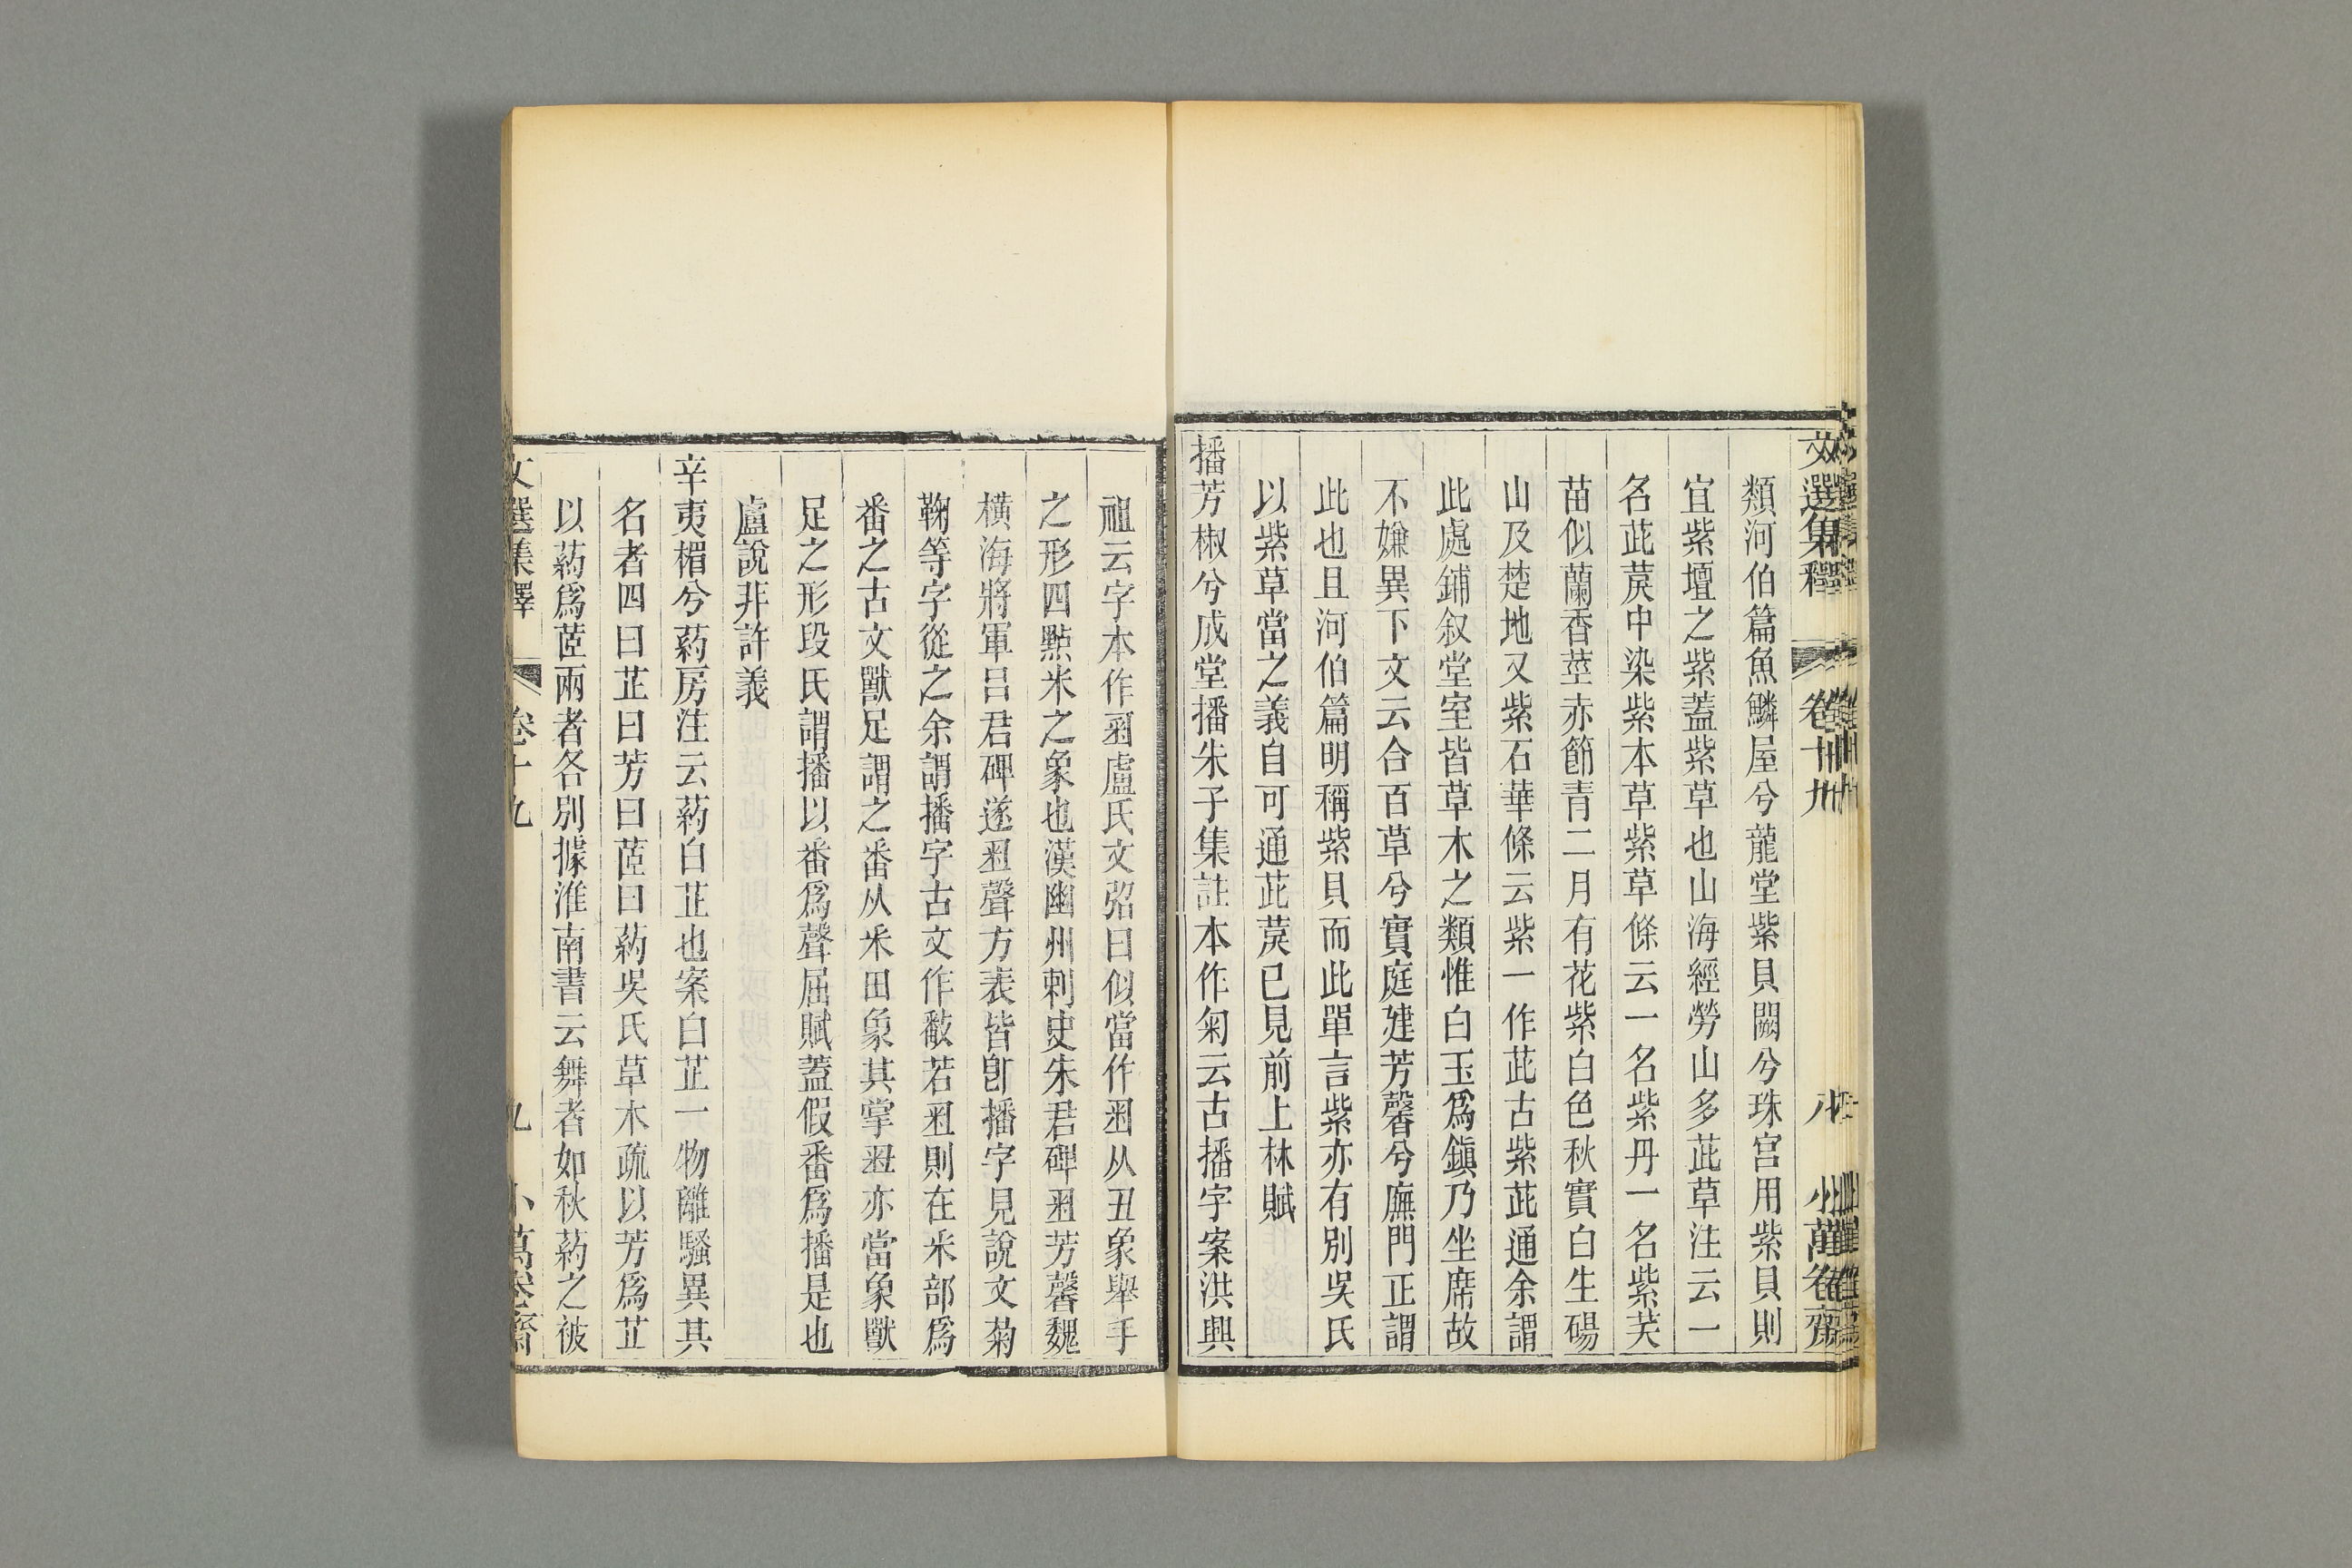 類河伯篇魚鱗屋兮龍堂紫貝闕兮珠宮用紫貝則
宜紫壇之紫蓋紫草也山海經勞山多茈草注云一
名茈䓞中染紫本草紫草條云一名紫丹一名紫芙
苗似蘭香莖赤節青二月有花紫白色秋實白生碭
山及楚地又紫石華條云紫一作茈古紫茈通余謂
此處鋪叙堂室皆草木之類惟白玉爲鎭乃坐席故
不嫌異下文云合百草兮實庭建芳馨兮廡門正謂
此也且河伯篇明稱紫貝而此單言紫亦有別吳氏
以紫草當之義自可通茈䓞已見前上林賦
播芳椒兮成堂播朱子集註本作匊云古播字案洪興
祖云字本作𢿥盧氏文弨曰似當作𢿥从丑象舉手
之形四㸃米之象也漢幽州刺史朱君碑𢿥芳馨魏
橫海將軍呂君碑遂𢿥聲方表皆卽播字見說文菊
鞠等字從之余謂播字古文作𢿥若𢿥則在釆部爲
番之古文獸足謂之番从釆田象其掌𢿥亦當象獸
足之形段氏謂播以番爲聲屈賦蓋假番爲播是也
盧說非許義
辛夷楣兮葯房注云葯白芷也案白芷一物離騷異其
名者四曰芷曰芳曰茝曰葯吳氏草木疏以芳爲芷
以葯爲茝兩者各別據淮南書云舞者如秋葯之被
文選集釋 卷十九 九 小萬卷齋